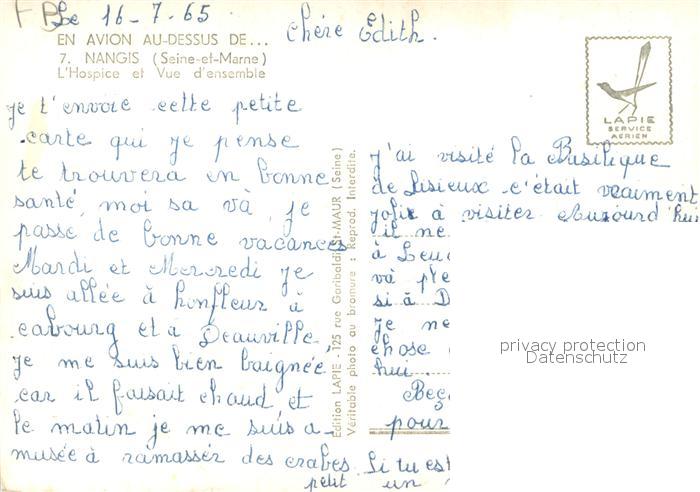 FB
Le 16-7-65
EN AVION AU-DESSUS DE...
7. NANGIS (Seine-et-Marne)
L'Hospice et Vue d'ensemble
Chére Edith.
LAPIE
SERVICE
AERIEN
je t'envoie cette petite
carte qui je pense
te trouvera en bonne
santé, moi sa và, je
passe de bonne vacances
Mardi et Mercredi je
suis allée à honfleur à
cabourg et à Deauville,
je me suis bien baignée
car il faisait chaud et
le matin je me suis a-
musée à ramasser des crabes. Si tu est
petit un
Edition LAPIE - 125 rue Garibaldi, St-MAUR (Seine)
Véritable photo au bromure : Reprod. Interdite.
j'ai visité la Basilique
de Lisieux c'était vraiment
jolie à visiter Aujourd'hui
il ne
à
và
si à D
je ne
chose
hui.
pour
privacy protection
Datenschutz